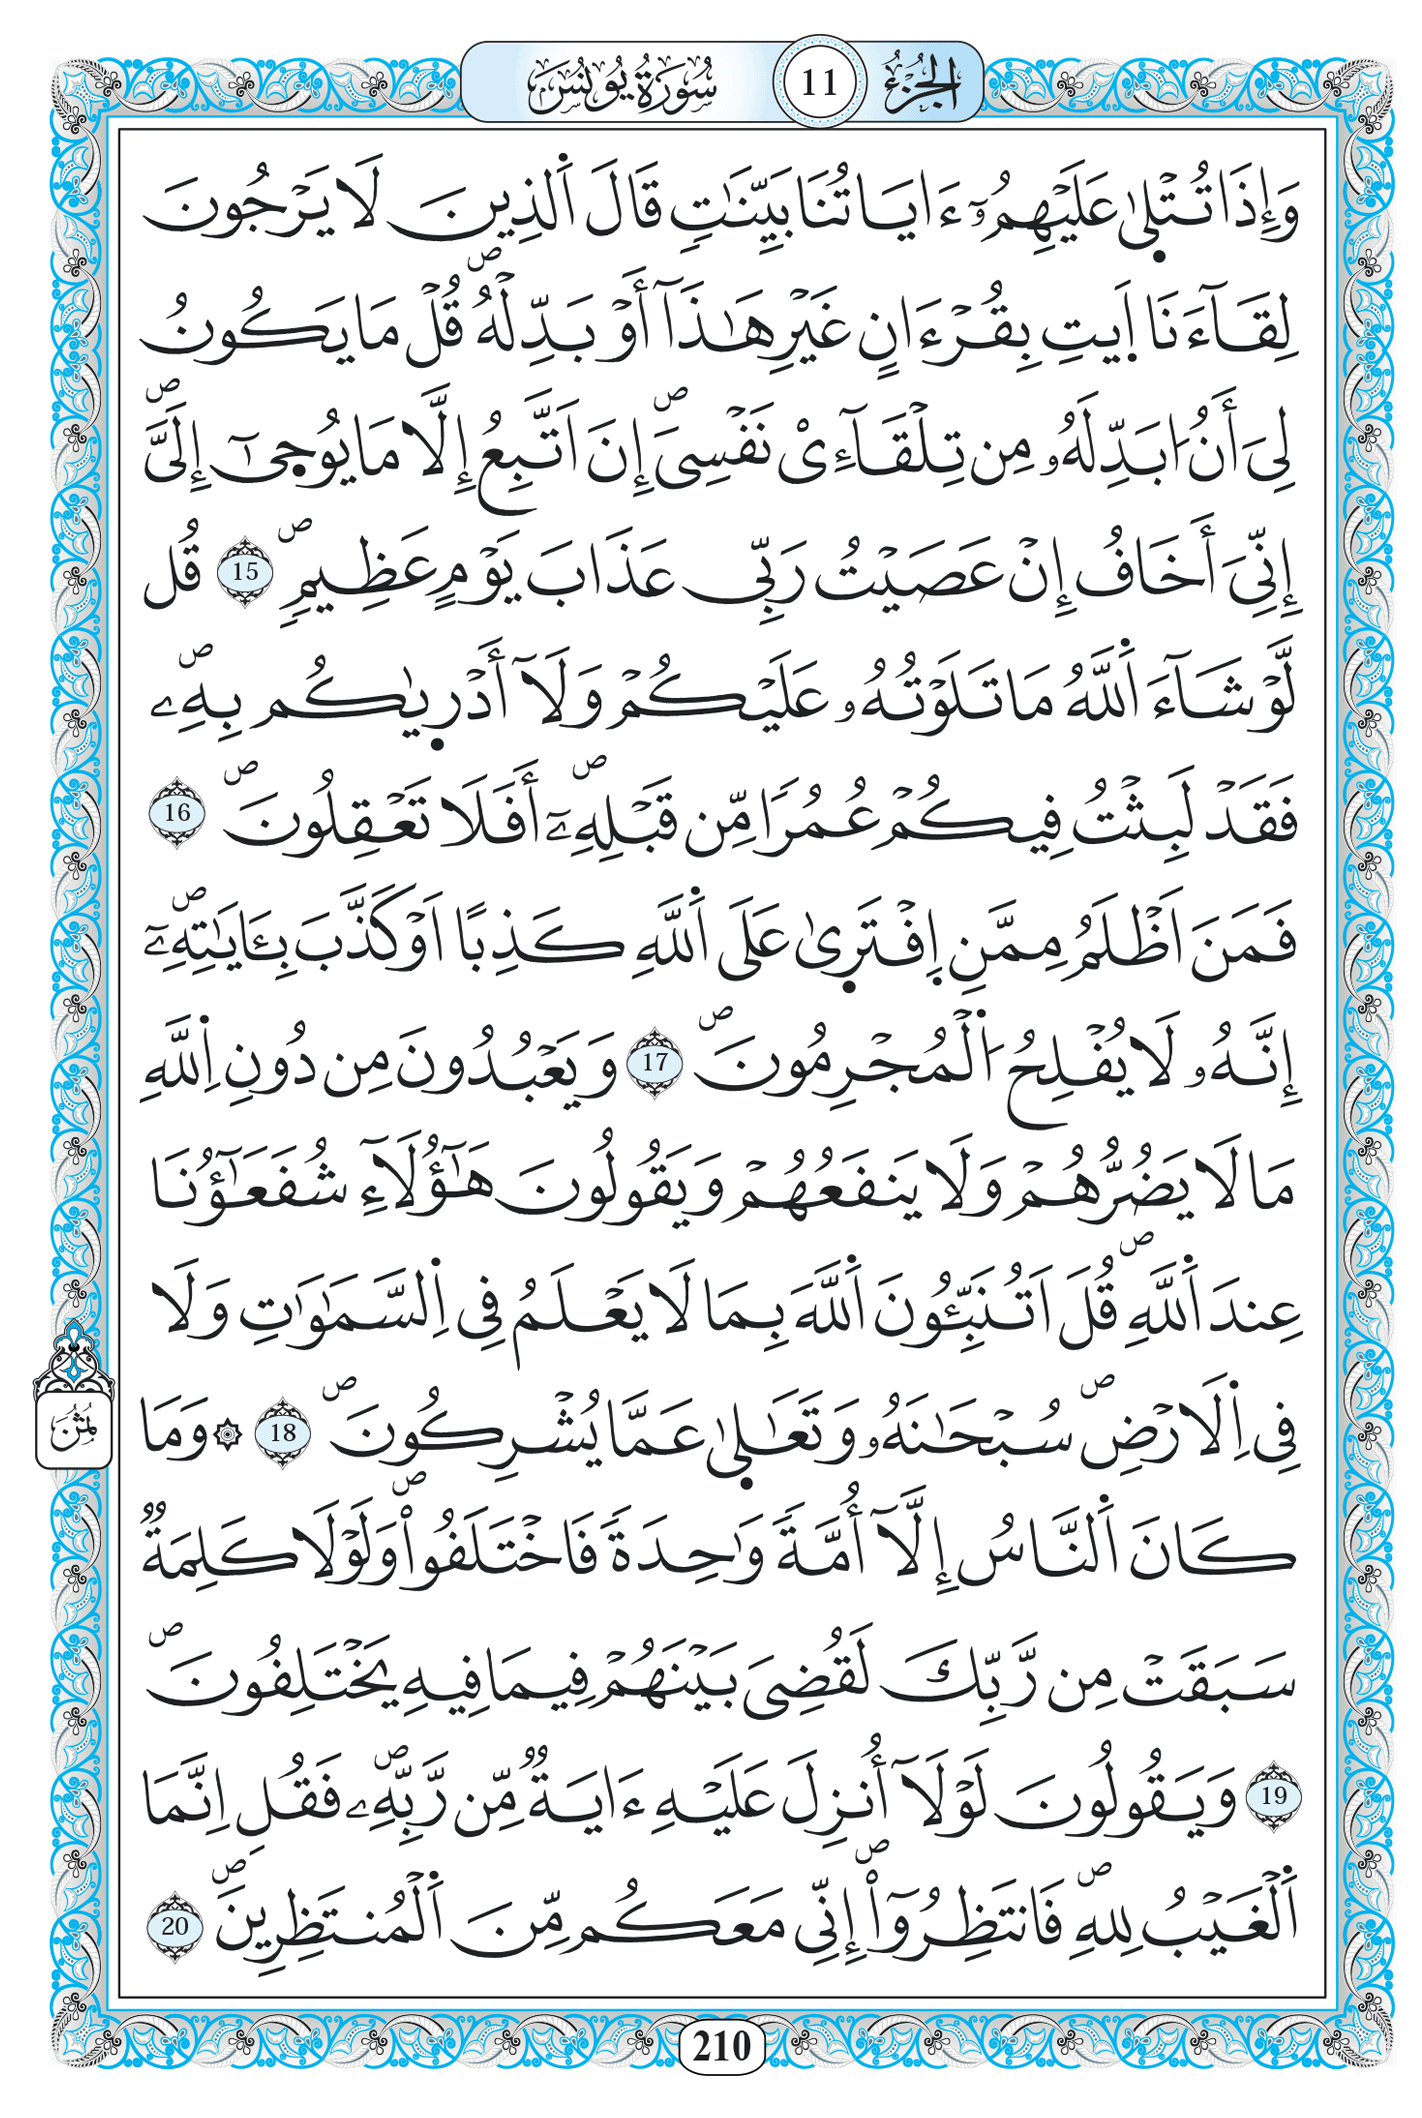 الجُزْءُ 11 سُورَةُ يُونُسَ
وَإِذَا تُتْلىٰ عَلَيْهِمُۥٓ ءَايَاتُنَا بَيِّنَٰتٖ قَالَ اَ۬لذِينَ لَا يَرْجُونَ
لِقَآءَنَا اَ۪يتِ بِقُرْءَانٍ غَيْرِ هَٰذَآ أَوْ بَدِّلْهُۖ قُلْ مَا يَكُونُ
لِيَ أَنُ ا۟بَدِّلَهُۥ مِن تِلْقَآءِےْ نَفْسِيَۖ إِنَ اَتَّبِعُ إِلَّا مَا يُوح۪ىٰٓ إِلَيَّۖ
إِنِّيَ أَخَافُ إِنْ عَصَيْتُ رَبِّي عَذَابَ يَوْمٍ عَظِيمٖۖ 15 قُل
لَّوْ شَآءَ اَ۬للَّهُ مَا تَلَوْتُهُۥ عَلَيْكُمْ وَلَآ أَدْر۪يٰكُم بِهِۦۖ
فَقَدْ لَبِثْتُ فِيكُمْ عُمُراٗ مِّن قَبْلِهِۦٓۖ أَفَلَا تَعْقِلُونَۖ 16
فَمَنَ اَظْلَمُ مِمَّنِ اِ۪فْتَر۪ىٰ عَلَى اَ۬للَّهِ كَذِباً اَوْ كَذَّبَ بِـَٔايَٰتِهِۦٓۖ
إِنَّهُۥ لَا يُفْلِحُ اُ۬لْمُجْرِمُونَۖ 17 وَيَعْبُدُونَ مِن دُونِ اِ۬للَّهِ
مَا لَا يَضُرُّهُمْ وَلَا يَنفَعُهُمْ وَيَقُولُونَ هَٰٓؤُلَآءِ شُفَعَٰٓؤُنَا
عِندَ اَ۬للَّهِۖ قُلَ اَتُنَبِّـُٔونَ اَ۬للَّهَ بِمَا لَا يَعْلَمُ فِي اِ۬لسَّمَٰوَٰتِ وَلَا
فِي اِ۬لَارْضِۖ سُبْحَٰنَهُۥ وَتَعَٰل۪ىٰ عَمَّا يُشْرِكُونَۖ 18 ۞ وَمَا
كَانَ اَ۬لنَّاسُ إِلَّآ أُمَّةٗ وَٰحِدَةٗ فَاخْتَلَفُواْۖ وَلَوْلَا كَلِمَةٞ
سَبَقَتْ مِن رَّبِّكَ لَقُضِيَ بَيْنَهُمْ فِيمَا فِيهِ يَخْتَلِفُونَۖ
19 وَيَقُولُونَ لَوْلَآ أُنزِلَ عَلَيْهِ ءَايَةٞ مِّن رَّبِّهِۦۖ فَقُلِ اِنَّمَا
اَ۬لْغَيْبُ لِلهِۖ فَانتَظِرُوٓاْۖ إِنِّي مَعَكُم مِّنَ اَ۬لْمُنتَظِرِينَۖ 20
ثُمُنُ
210